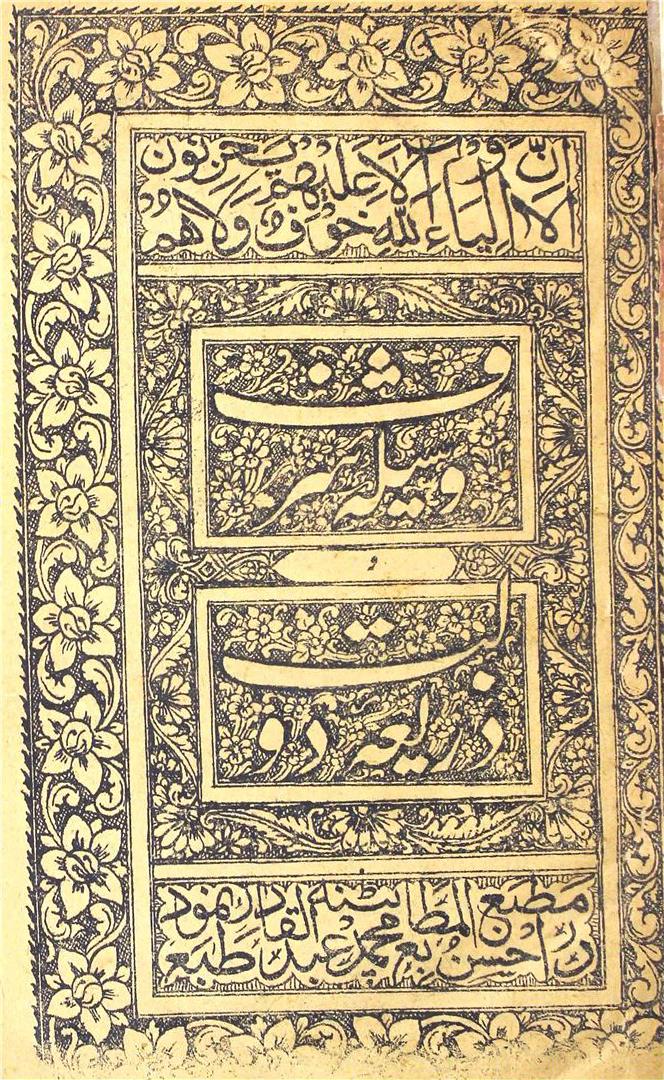 اَلَا اِنَّ اَوْلِيَاءَ اللّٰهِ لَا خَوْفٌ عَلَيْهِمْ وَلَا هُمْ يَحْزَنُون
وسیله شرف
و
ذریعه دولت
در مطبع احسن المطابع پٹنه محمد عبد القادر طبع نمود